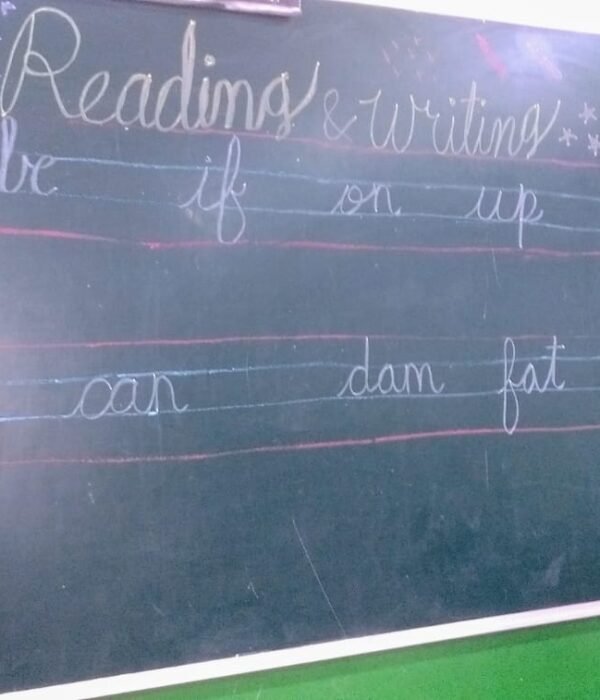 Reading & Writing
be if on up
can dam fat